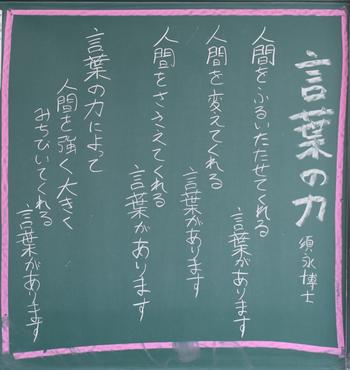 言葉の力
須永博士
人間をふるいたたせてくれる
言葉があります
人間を変えてくれる
言葉があります
人間をささえてくれる
言葉があります
言葉の力によって
人間を強く大きく
みちびいてくれる
言葉があります